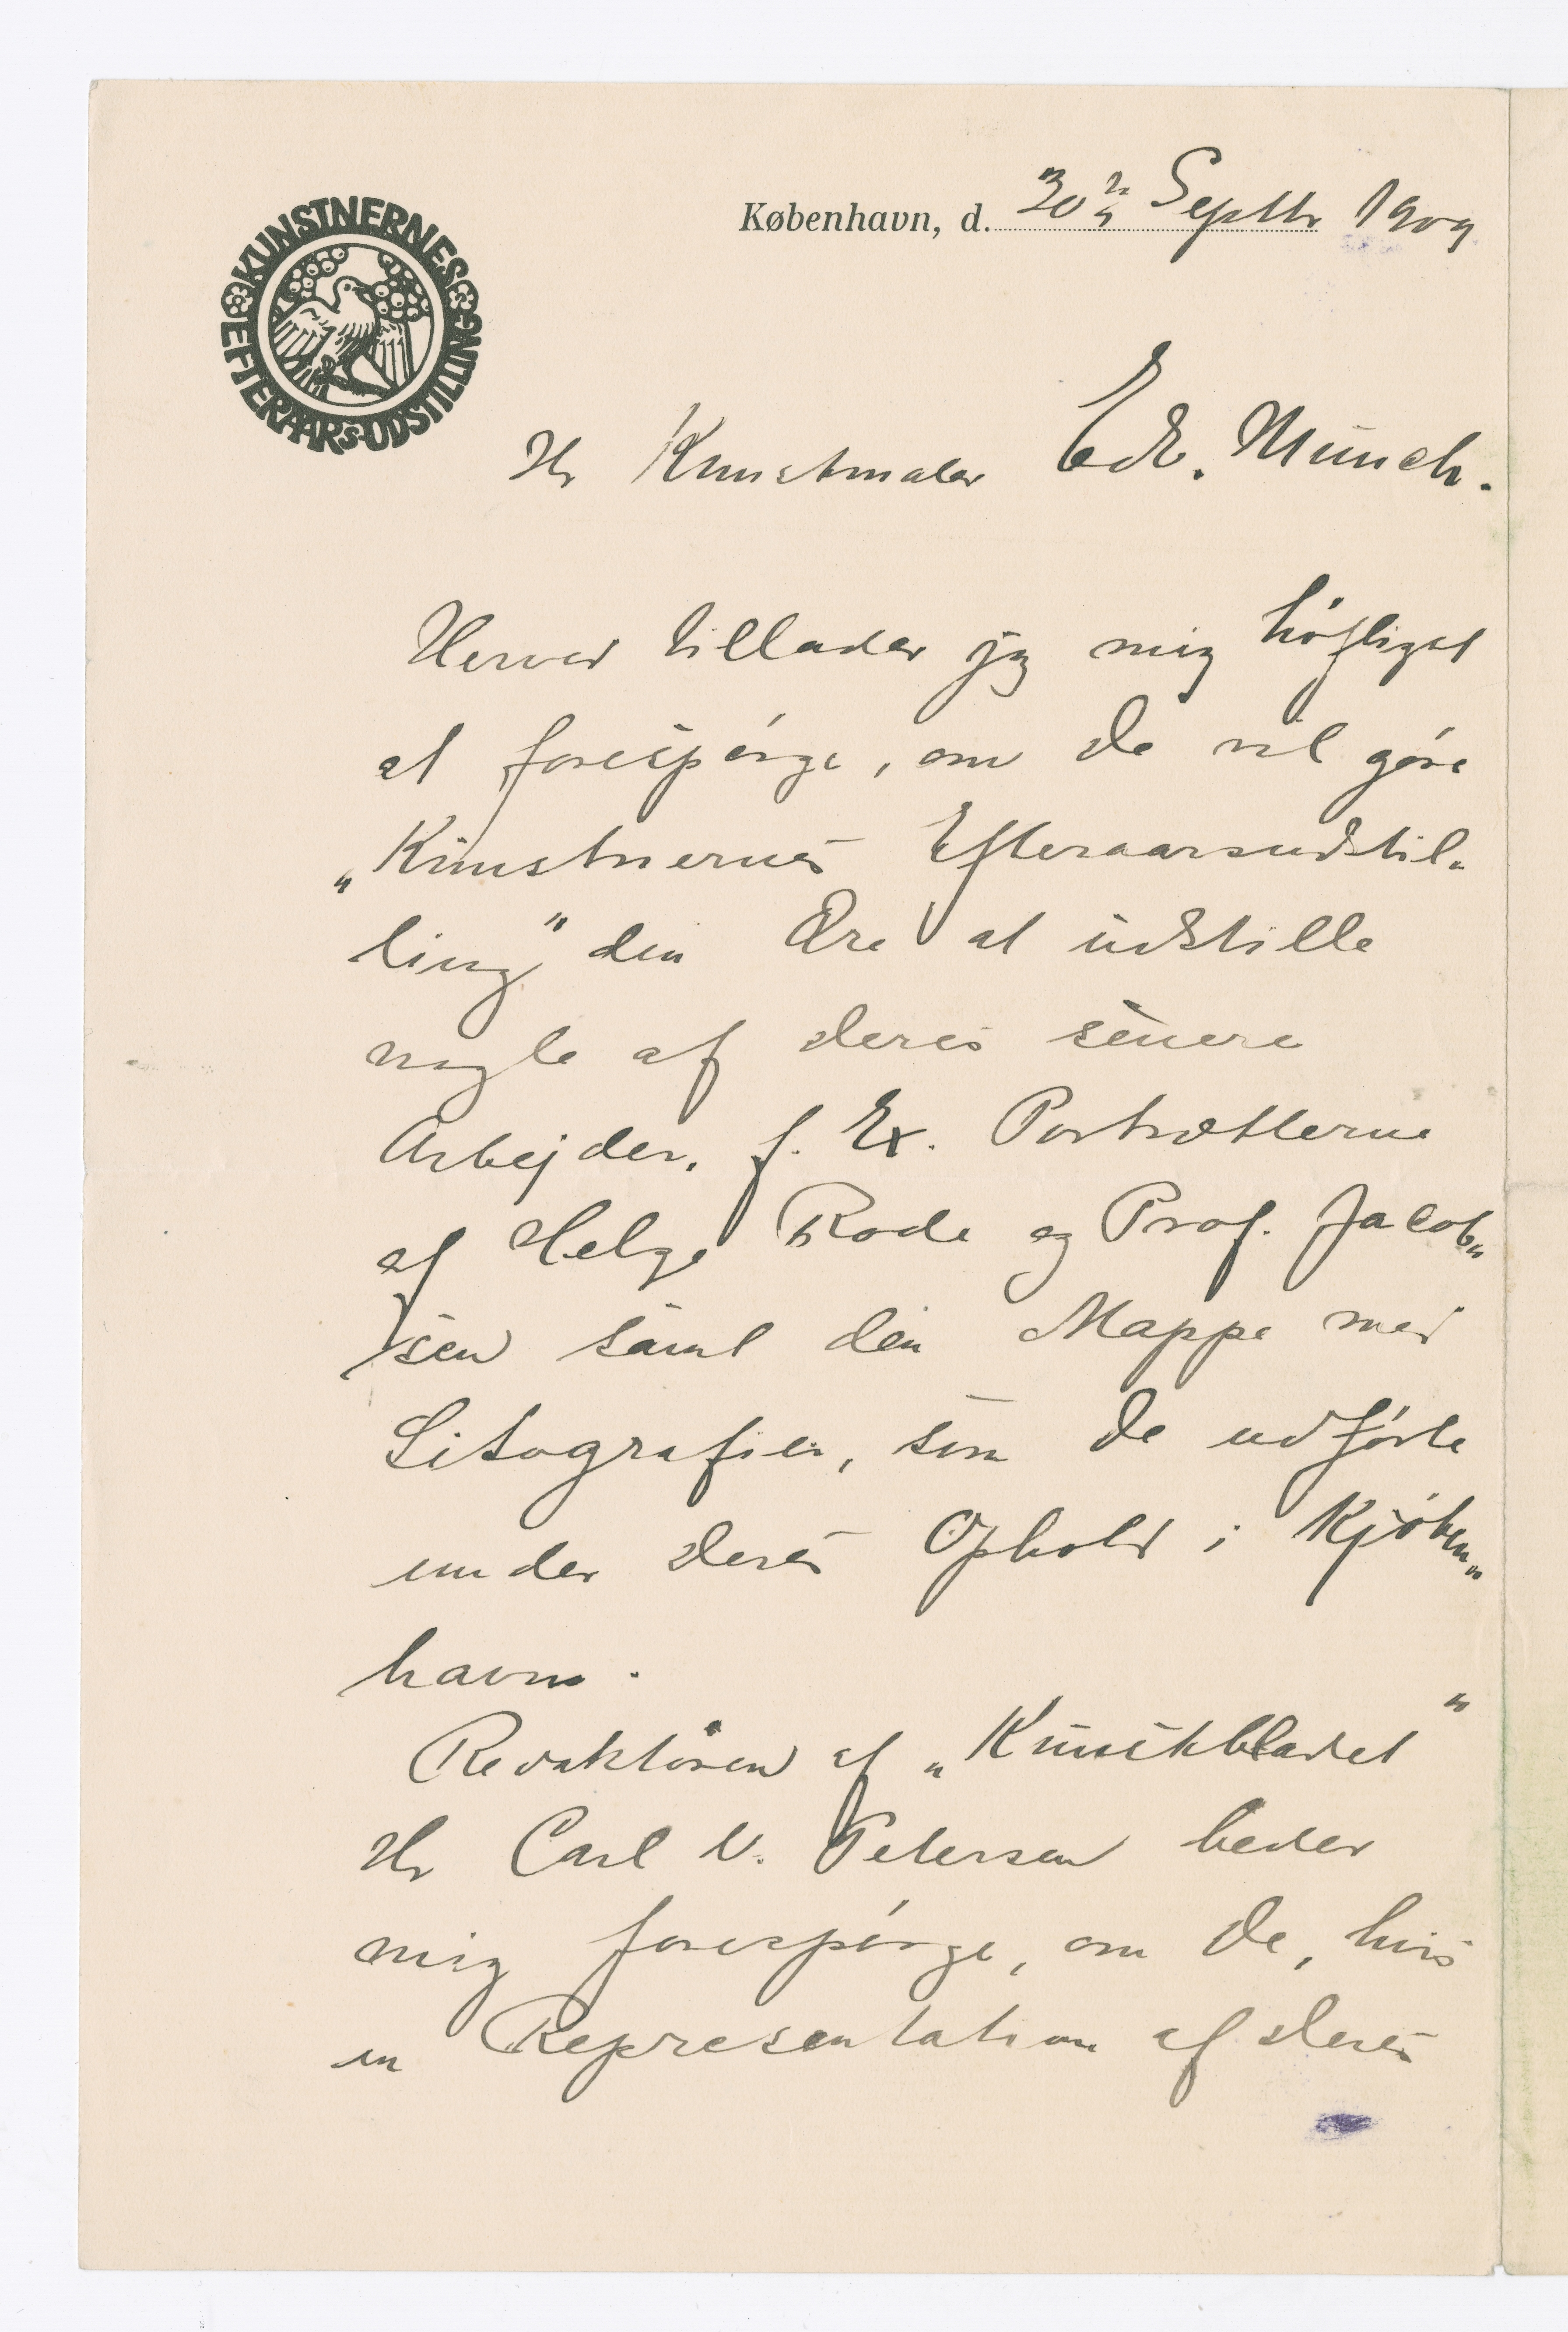 KUNSTNERNES EFTERAARS-UDSTILLING
København, d. 30 Septbr 1909
Hr Kunstmaler Edv. Munch.
Herved tillader jeg mig höfligst
at forespørge, om De vil gøre
„Kunstnernes Efteraarsudstil-
ling" den Ære at udstille
nogle af Deres senere
Arbejder, f. Ex. Portrætterne
af Helge Rode og Prof. Jacob-
sen samt den Mappe med
Litografier, som De udførte
under Deres Ophold i Kjøben-
havn.
Redaktøren af „Kunstbladet"
Hr Carl V. Petersen beder
mig forespørge, om De, hvis
en Representation af Deres